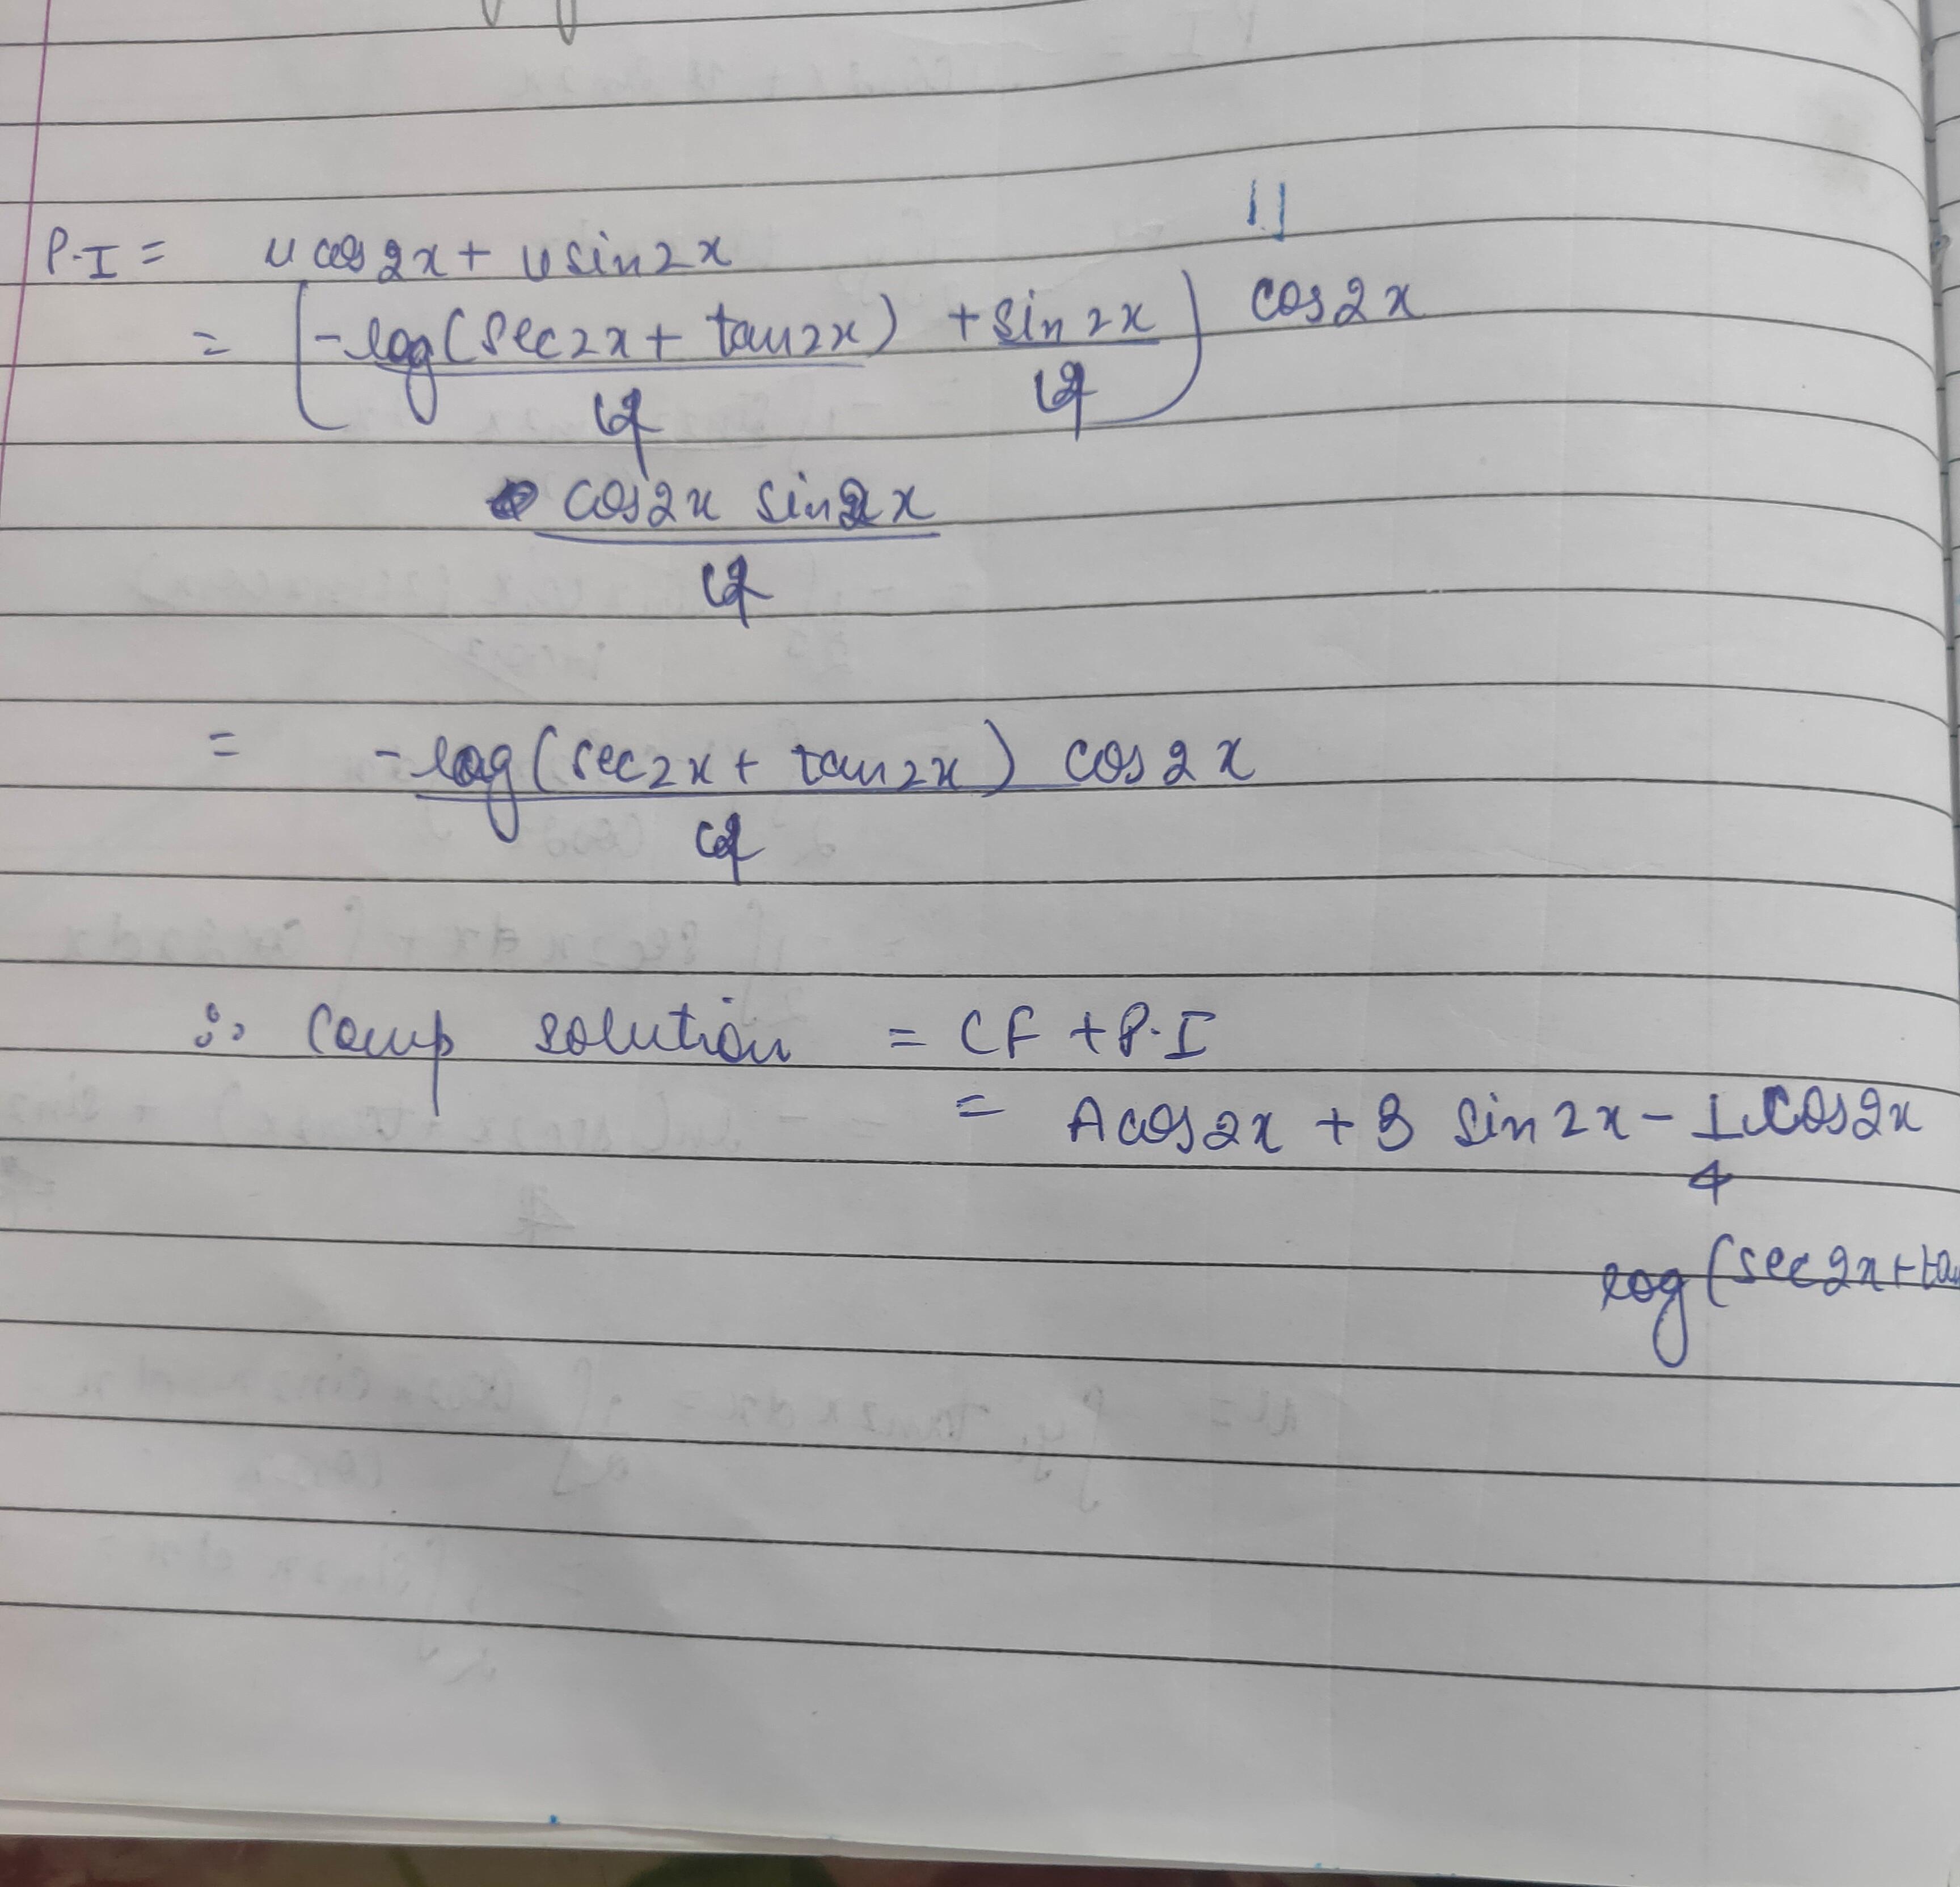 P.I = u cos2x + v sin2x
= (-log(sec2x + tan2x)/4 + sin2x/4) cos2x
cos2x sin2x/4
= -log(sec2x + tan2x) cos2x/4
∴ Comp solution = CF + P.I
= A cos2x + B sin2x - 1/4 cos2x
log(sec2x + ta